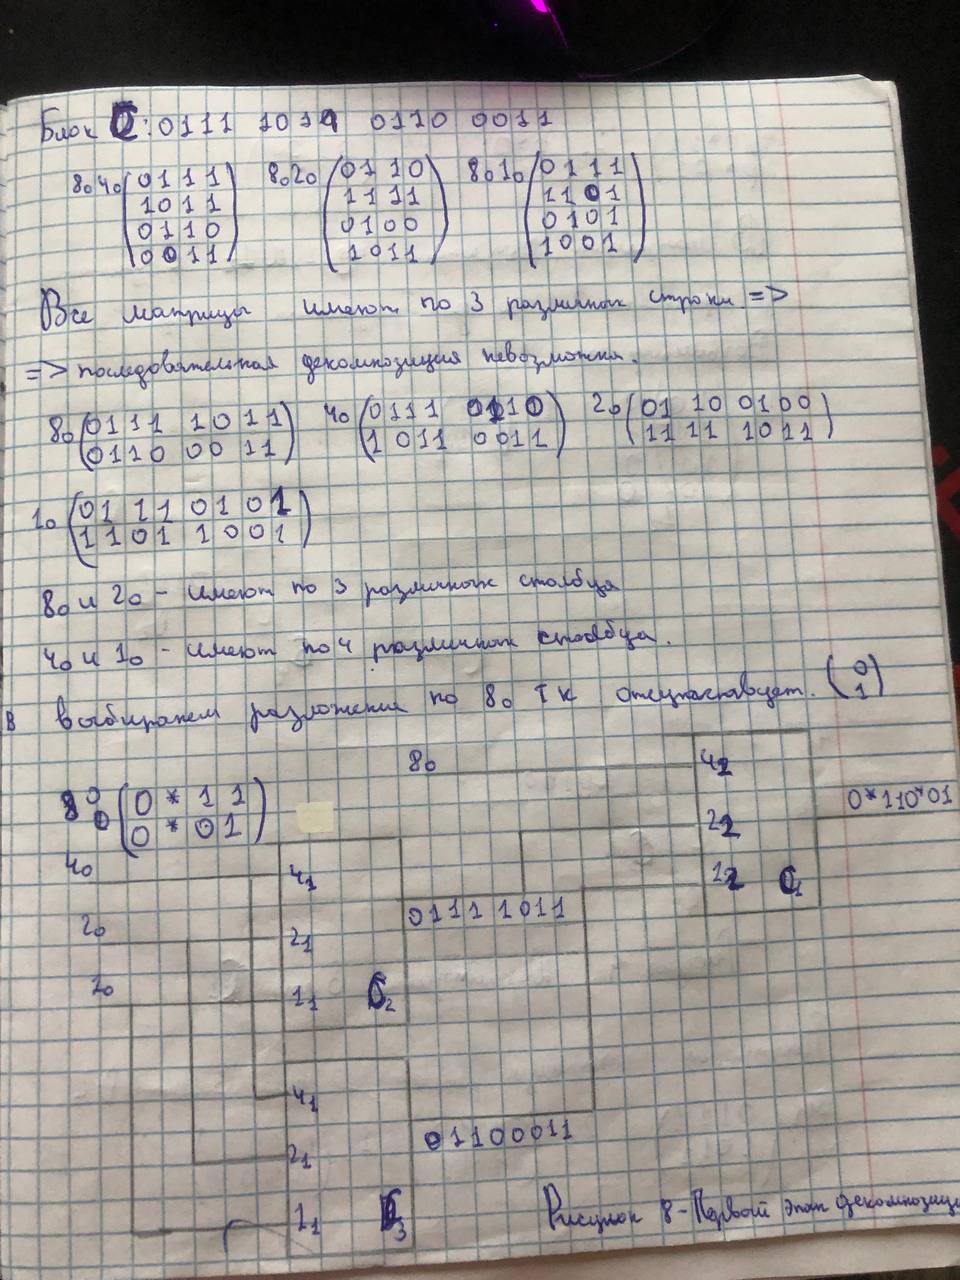 Блок С: 0111 1011 0110 0011
8₀4₀ (0111 8₀2₀ (0110 8₀1₀ (0111
1011 1111 1101
0110 0100 0101
0011) 1011) 1001)
Все матрицы имеют по 3 различных строки =>
=> последовательная декомпозиция невозможна.
8₀ (0111 1011 4₀ (0111 0110 2₀ (01 10 0100
0110 0011) 1011 0011) 11 11 1011)
1₀ (01 11 0101
1101 1001)
8₀ и 2₀ - имеют по 3 различных столбца
4₀ и 1₀ - имеют по 4 различных столбца.
В выбираем разложение по 8₀ т к отсутствует. (0
1)
8₀ 4₂
8₀ (0 * 1 1
0 * 0 1) 0*110*01
2₂
4₀ 4₁ 1₂ C₁
2₀ 2₁ 0111 1011
1₀ 1₁ C₂
4₁
2₁ 01100011
1₁ C₃
Рисунок 8 - Первый этап декомпозиц